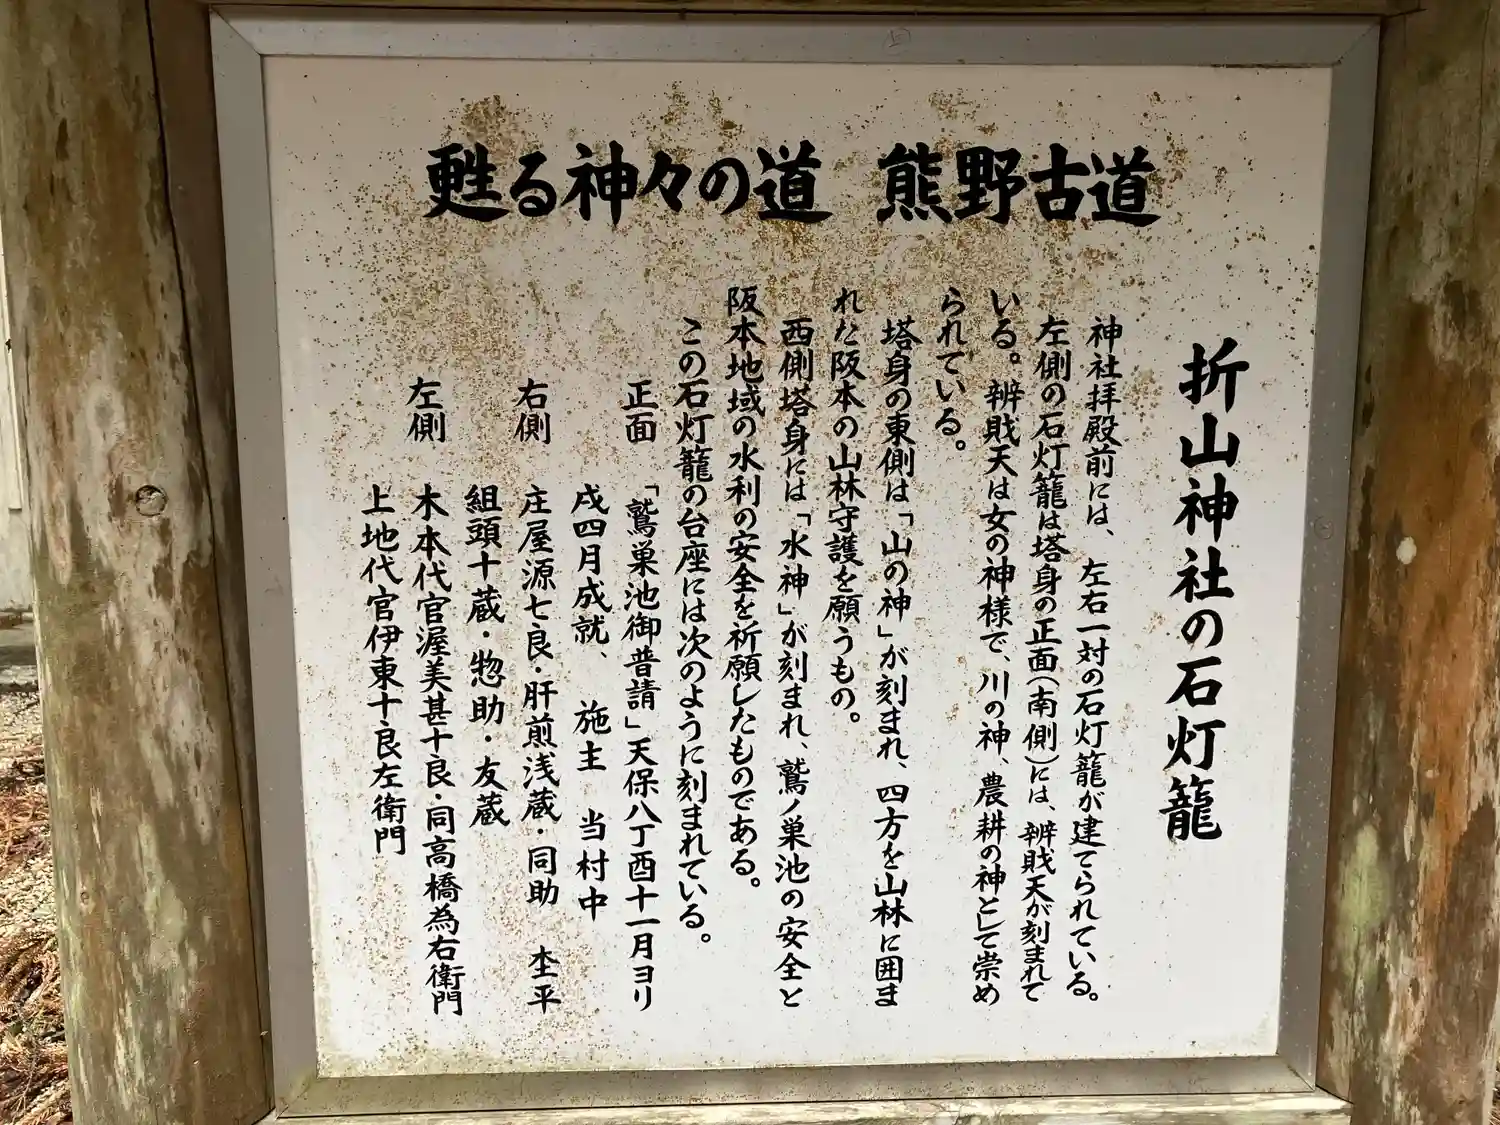 甦る神々の道 熊野古道
折山神社の石灯籠
神社拝殿前には、左右一対の石灯籠が建てられている。
左側の石灯籠は塔身の正面(南側)には、辨戝天が刻まれて
いる。辨戝天は女の神様で、川の神、農耕の神として崇め
られている。
塔身の東側は「山の神」が刻まれ、四方を山林に囲ま
れた阪本の山林守護を願うもの。
西側塔身には「水神」が刻まれ、鷲ノ巣池の安全と
阪本地域の水利の安全を祈願したものである。
この石灯籠の台座には次のように刻まれている。
正面 「鷲巣池御普請」天保八丁酉十一月ヨリ
戌四月成就、 施主 当村中
右側 庄屋源七良・肝煎浅蔵・同助 杢平
組頭十蔵・惣助・友蔵
左側 木本代官渥美甚十良・同高橋為右衛門
上地代官伊東十良左衛門